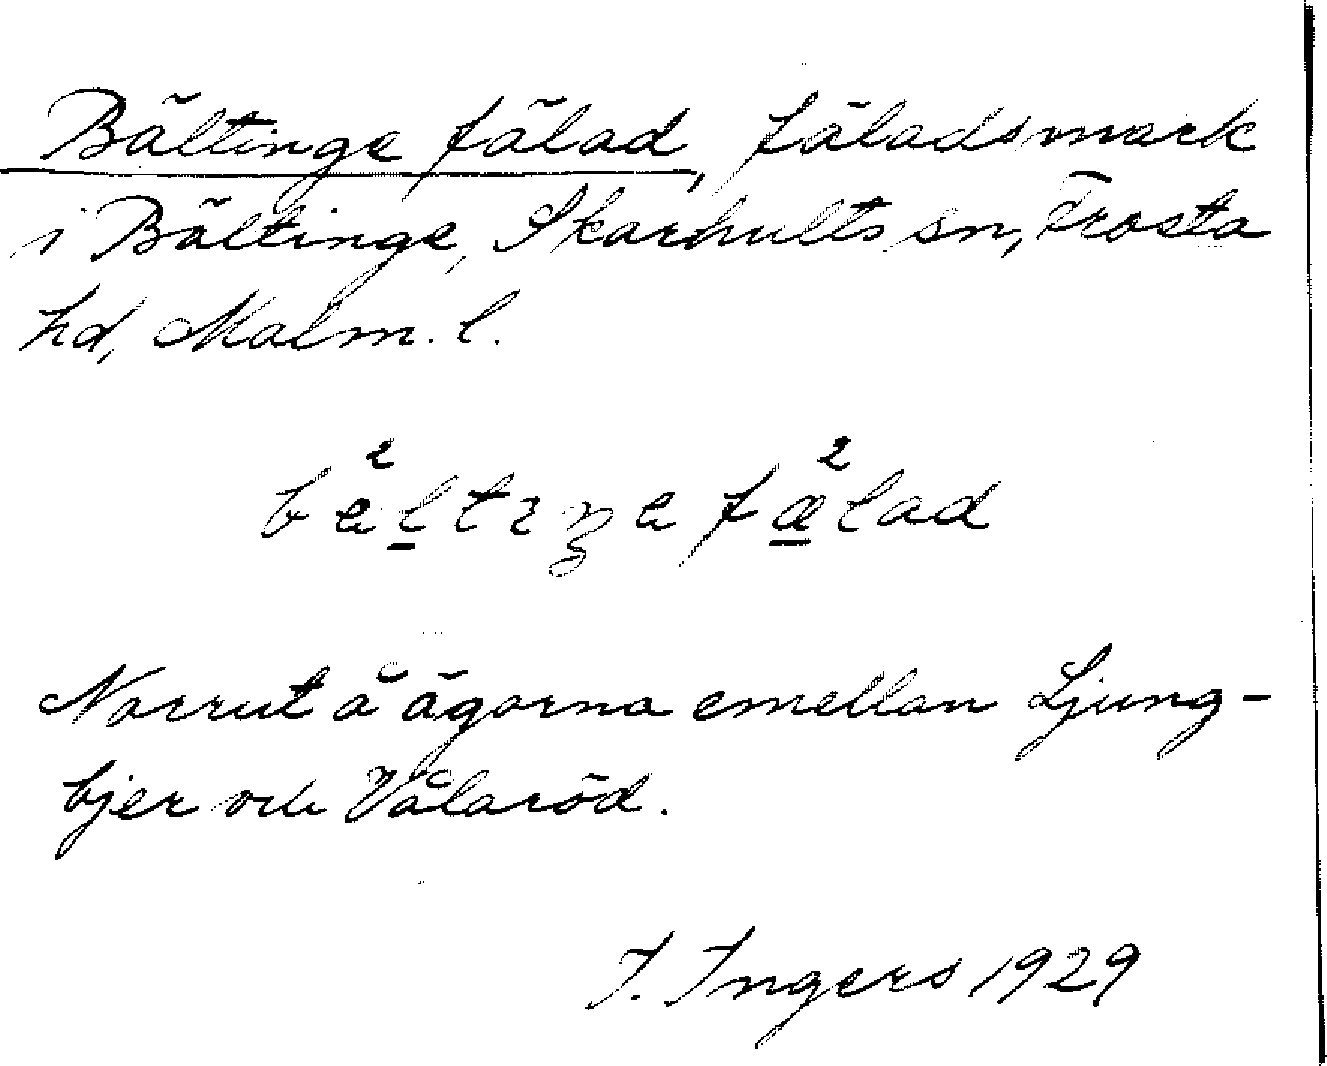 Bältinge fälad, fäladsmark
i Bältinge, Skarhults sn, Frosta
hd, Malm. l.
Norrut å ägorna emellan Ljung-
bjer och Vålaröd.
I. Ingers 1929